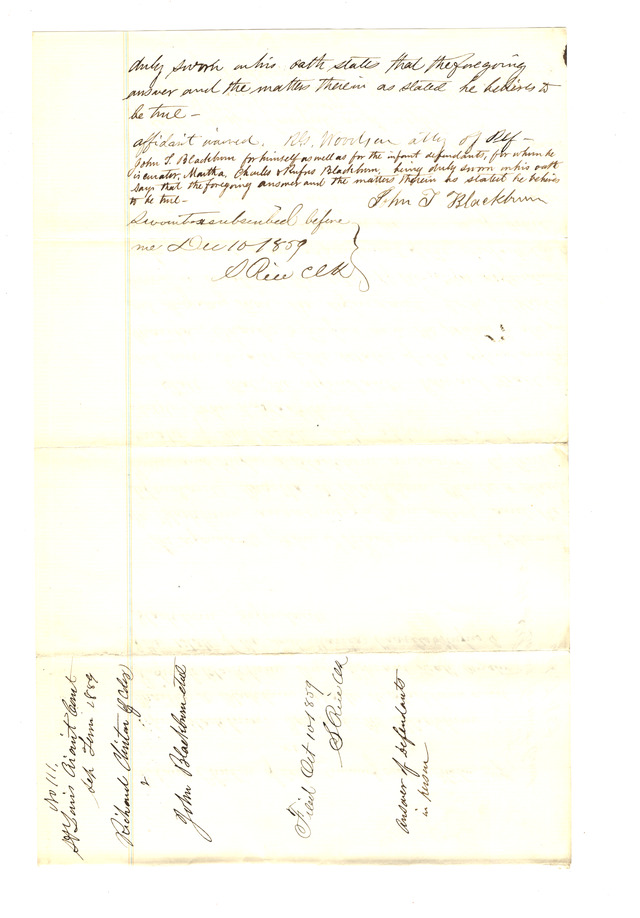 duly sworn on his oath states that the foregoing
answer and the matters therein as stated he believes to
be true —
affidavit waived. Woodson atty of Plf —
John T. Blackburn for himself as well as for the infant defendants, for whom he
is curator, Martha, Charles & Rufus Blackburn, being duly sworn on his oath
says that the foregoing answer and the matters therein as stated he believes
to be true —
John T Blackburn
Sworn to & subscribed before
me 10 1859
S Rice Clk
No 111.
St Louis Circuit Court
Term 1859
Richard
v
John Blackburn et al
Filed Oct 10 1859
S Rice Clk
Answer of defendants
in person